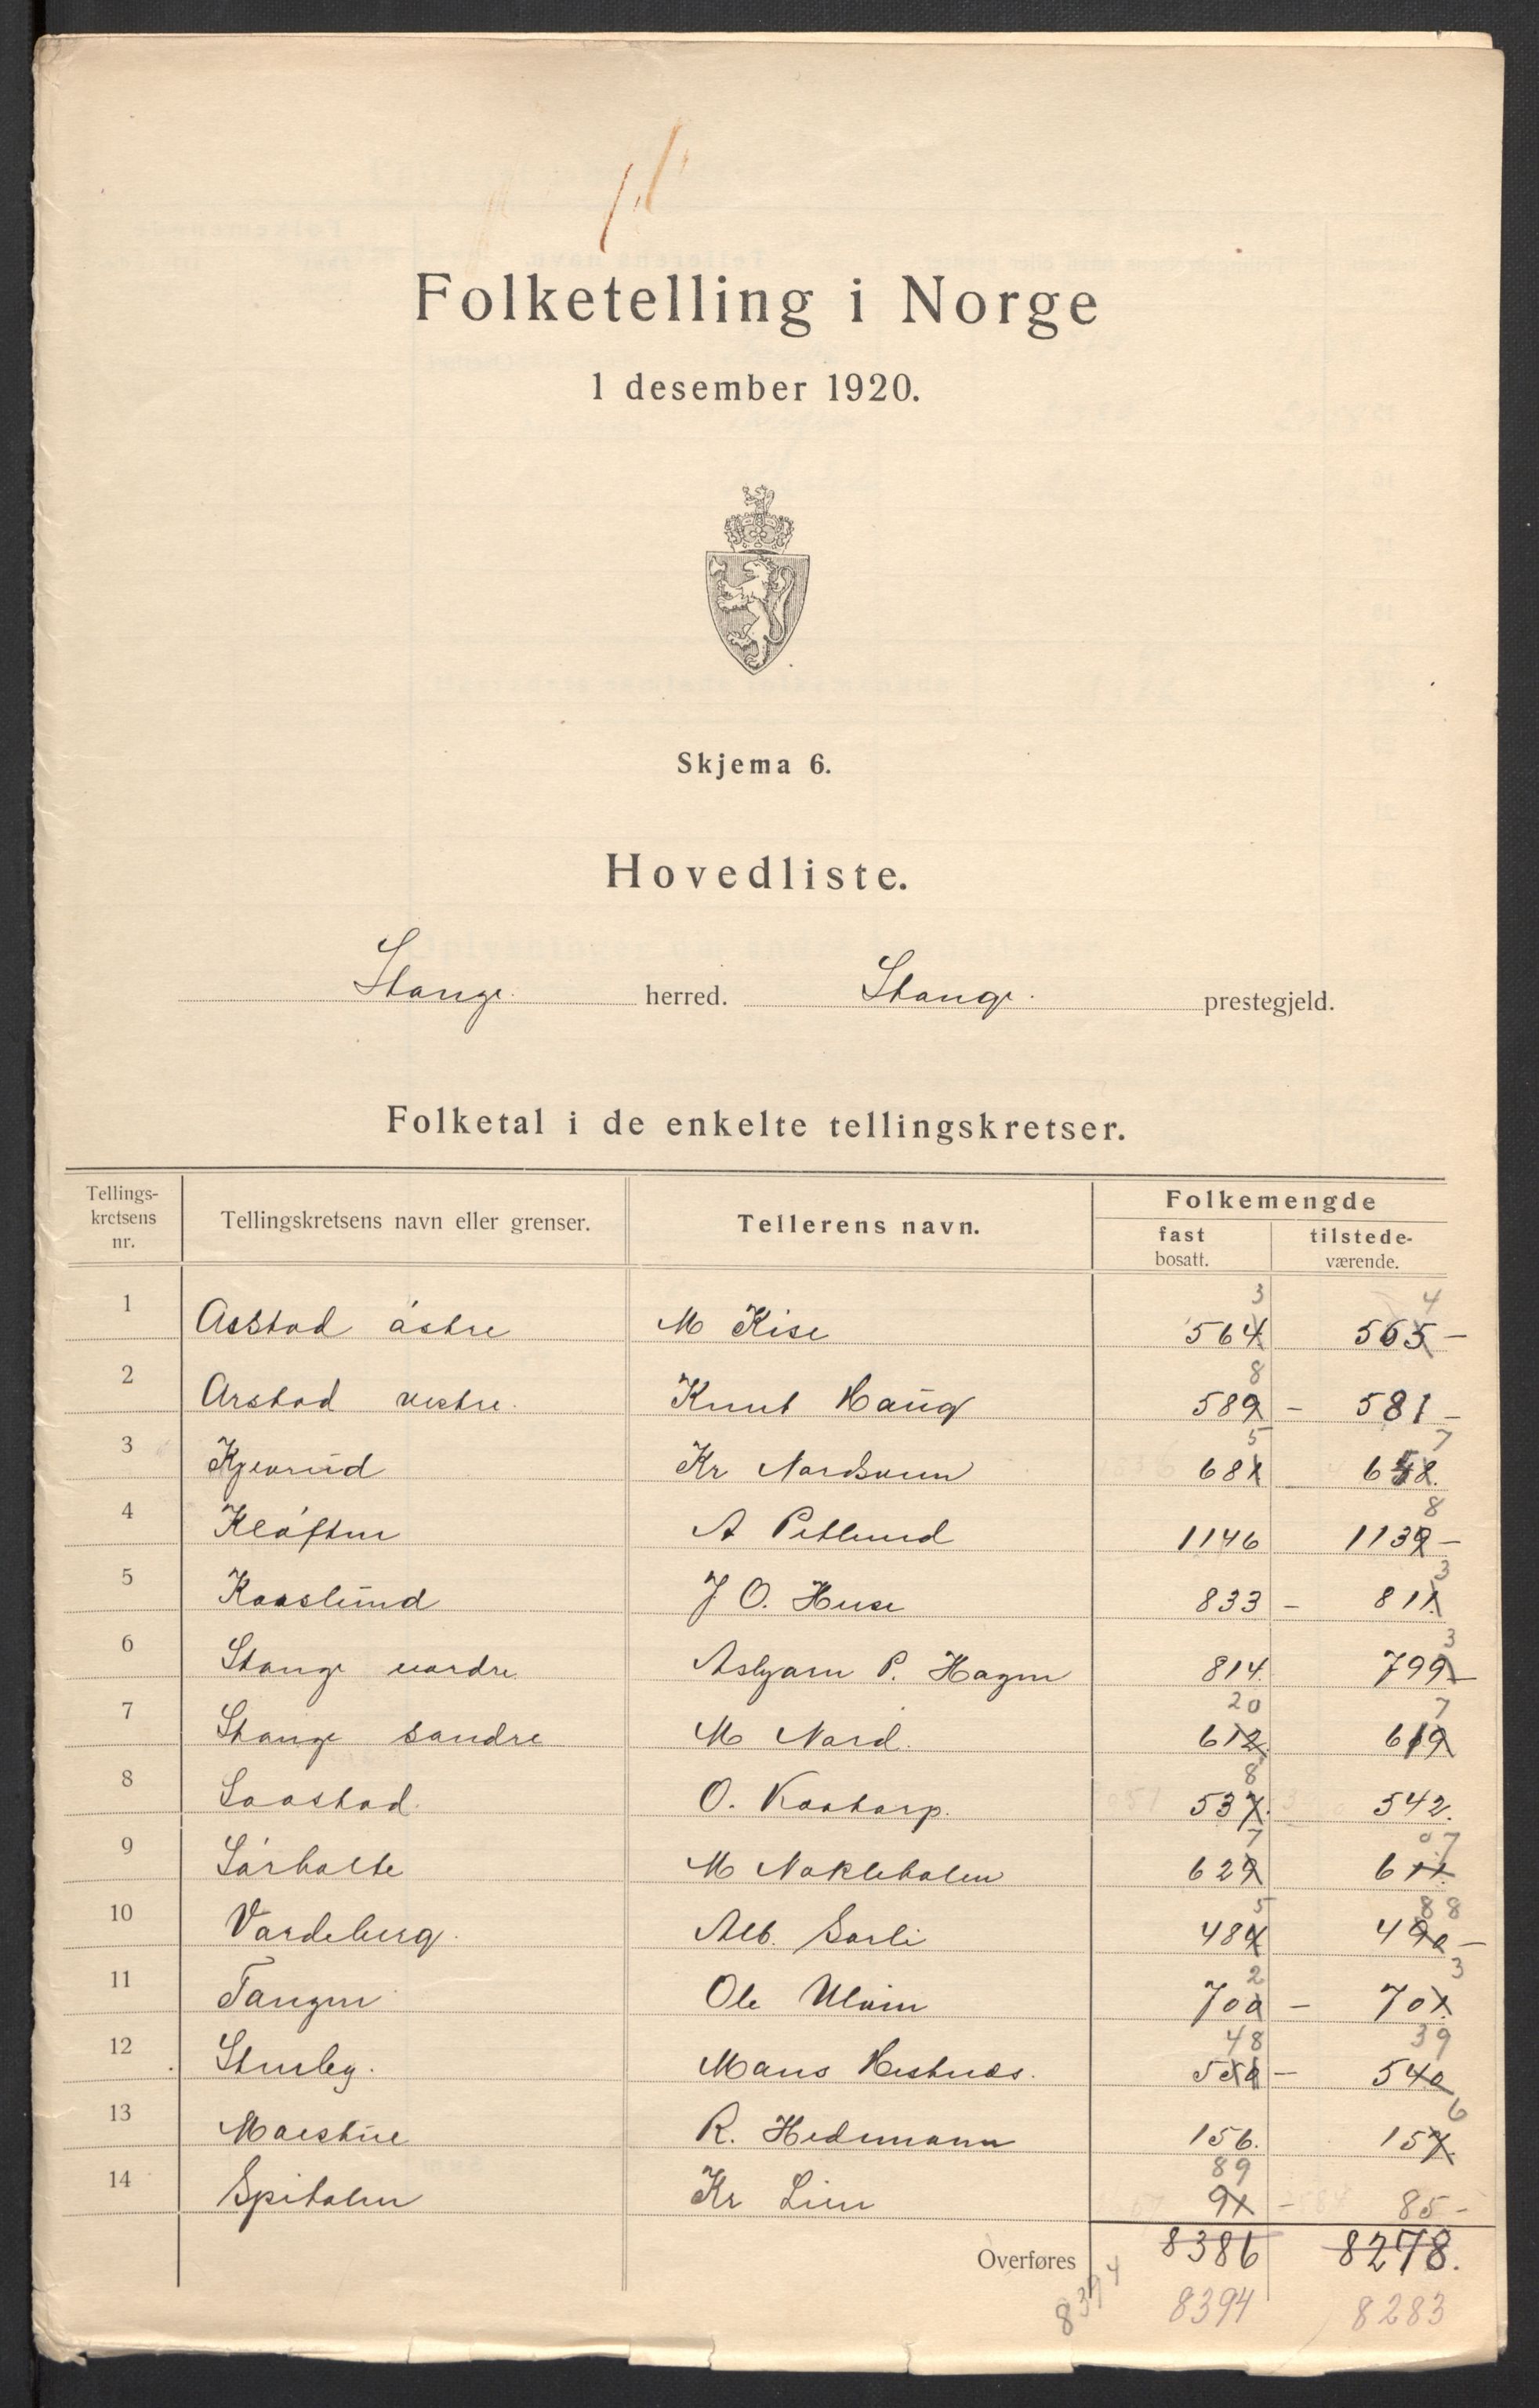 Folketelling i Norge
1 desember 1920.
Skjema 6.
Hovedliste.
Stange herred. Stange. prestegjeld.
Folketal i de enkelte tellingskretser.
Tellings-kretsens nr. Tellingskretsens navn eller grenser. Tellerens navn. Folkemengde
fast bosatt. tilstede-værende.
3 4
1 Asstad østre M Kise 564 565 –
8
2 Arstad vestre. Knut Haug 589 – 581 –
5 7
3 Kjevrud Kr Nordsveen 681 – 658.
8
4 Kløften A Petlund 1146 1139 –
3
5 Kaaslund J O. Huse 833 – 811.
3
6 Stange nordre Asbjørn P. Hagen 814. 799 –
20 7
7 Stange søndre M Nord. 612. 619
8
8 Saastad. O. Kaatorp. 537. 542.
7 07
9 Sørholte M Nokleholen 629 611.
5 88
10 Vardeberg. Alb. Sørli 484 490 –
2 3
11 Tangen Ole Uløin 700 – 701.
48 39
12 Strubeg. Mans Hestnæs. 550 – 540
6
13 Maestue R. Hedemann 156. 157.
89
14 Spitalen Kr Lien 91 – 85 –
Overføres 8386 8278.
8394 8394 8283